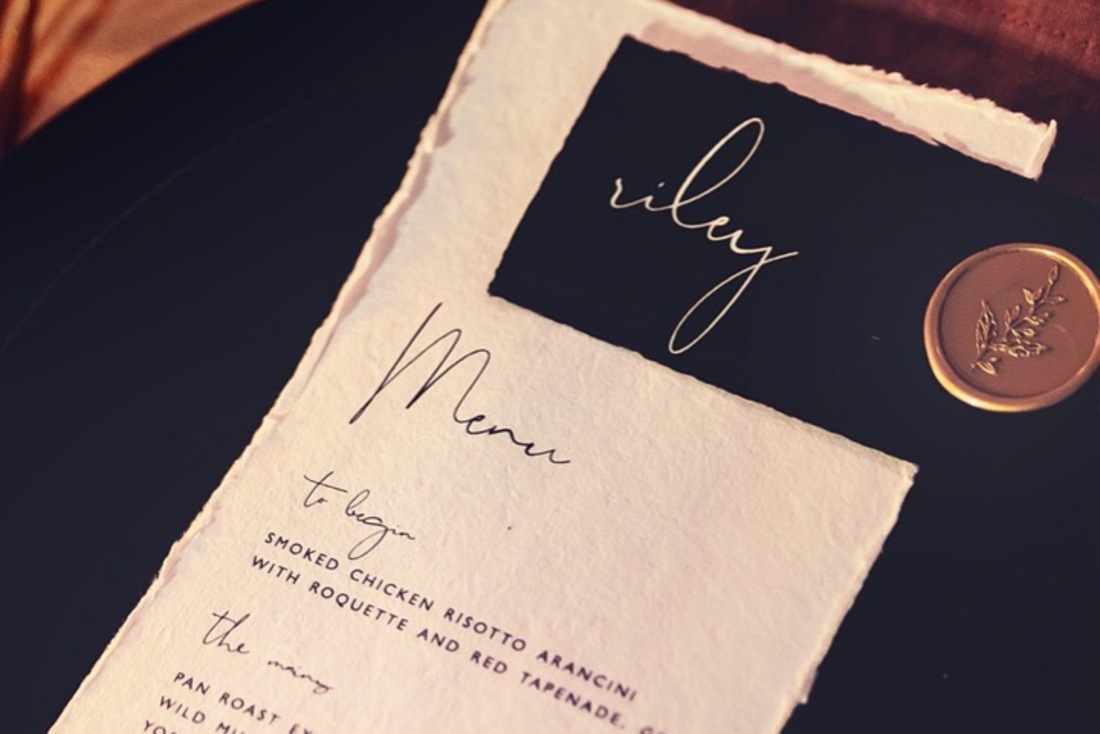 riley
Menu
to begin
SMOKED CHICKEN RISOTTO ARANCINI
WITH ROQUETTE AND RED TAPENADE,
the mains
PAN ROAST
WILD